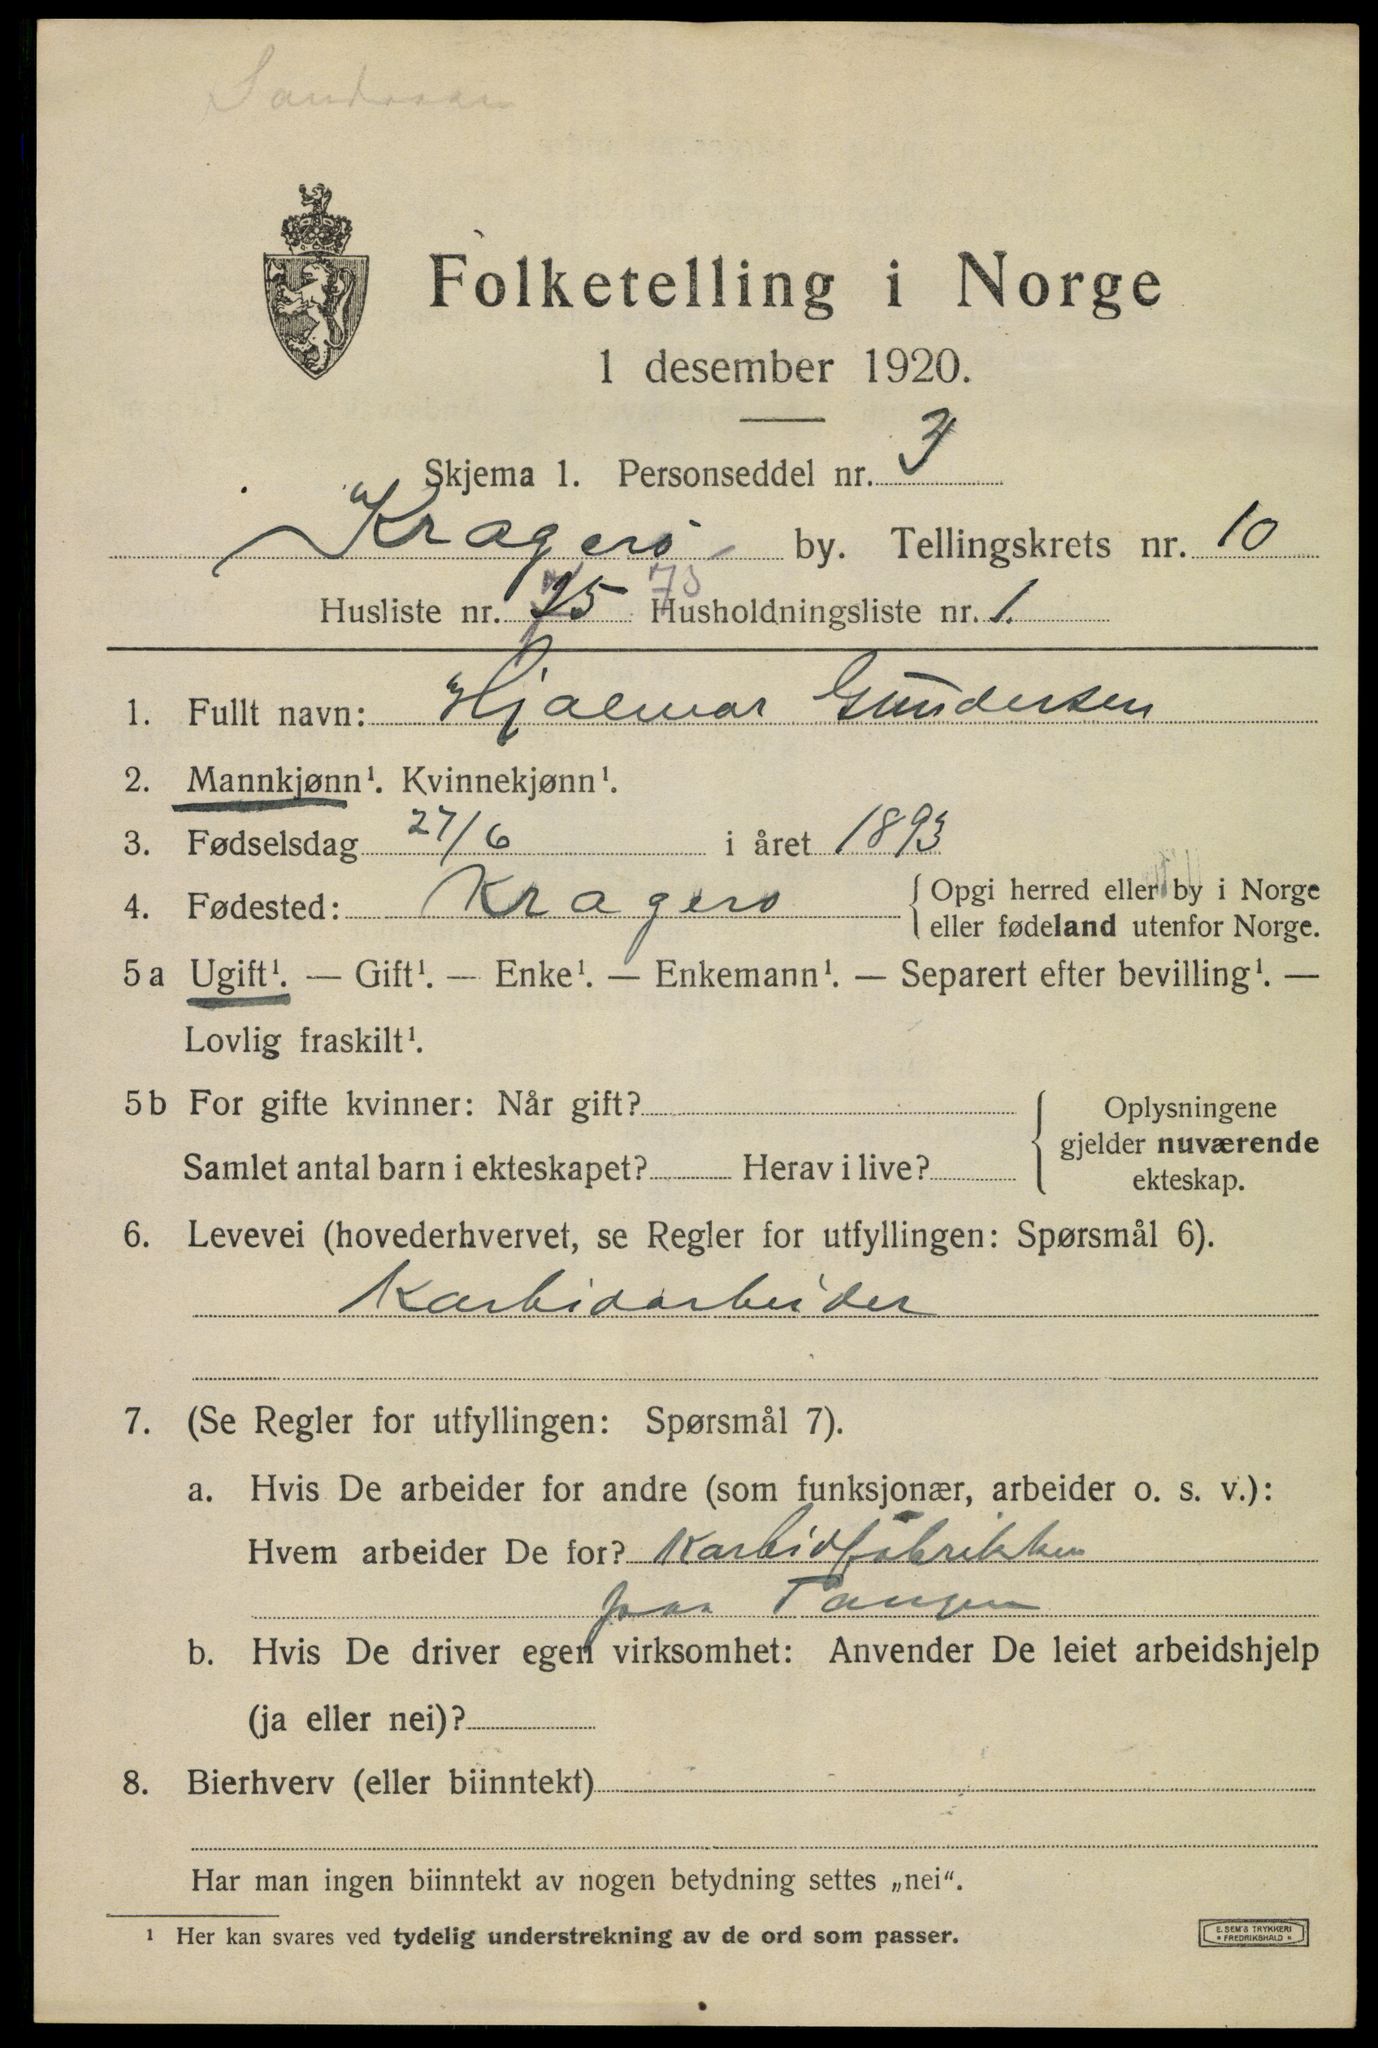 Folketelling i Norge
1 desember 1920.
Skjema 1. Personseddel nr. 3
Kragerø by. Tellingskrets nr. 10
Husliste nr. 75 73 Husholdningsliste nr. 1.
1. Fullt navn: Hjalmar Gundersen
2. Mannkjønn¹. Kvinnekjønn¹.
3. Fødselsdag 27/6 i året 1893
4. Fødested: Kragerø { Opgi herred eller by i Norge
eller fødeland utenfor Norge.
5 a Ugift¹. — Gift¹. — Enke¹. — Enkemann¹. — Separert efter bevilling¹. —
Lovlig fraskilt¹.
5 b For gifte kvinner: Når gift?
Samlet antal barn i ekteskapet? Herav i live?
Oplysningene
gjelder nuværende
ekteskap.
6. Levevei (hovederhvervet, se Regler for utfyllingen: Spørsmål 6).
Karbidarbeider
7. (Se Regler for utfyllingen: Spørsmål 7).
a. Hvis De arbeider for andre (som funksjonær, arbeider o. s. v.):
Hvem arbeider De for? Karbidfabrikken
paa Tangen
b. Hvis De driver egen virksomhet: Anvender De leiet arbeidshjelp
(ja eller nei)?
8. Bierhverv (eller biinntekt)
Har man ingen biinntekt av nogen betydning settes „nei“.
¹ Her kan svares ved tydelig understrekning av de ord som passer.
E. SEM'S TRYKKERI
* FREDRIKSHALD *